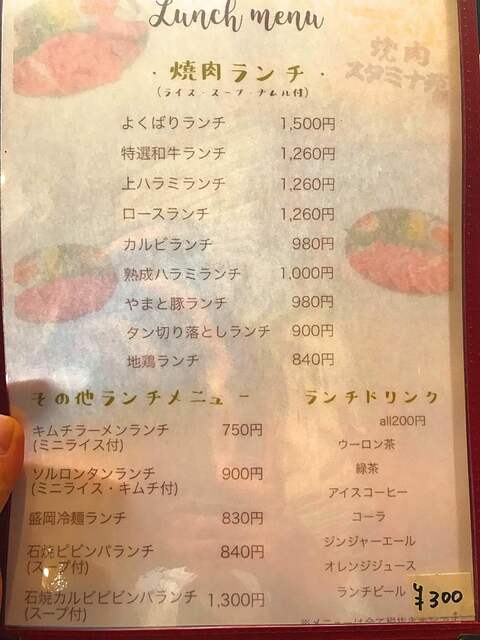 Lunch menu
焼肉
スタミナ苑
・焼肉ランチ・
(ライス・スープ・ナムル付)
よくばりランチ 1,500円
特選和牛ランチ 1,260円
上ハラミランチ 1,260円
ロースランチ 1,260円
カルビランチ 980円
熟成ハラミランチ 1,000円
やまと豚ランチ 980円
タン切り落としランチ 900円
地鶏ランチ 840円
その他ランチメニュー
キムチラーメンランチ 750円
(ミニライス付)
ソルロンタンランチ 900円
(ミニライス・キムチ付)
盛岡冷麺ランチ 830円
石焼ビビンバランチ 840円
(スープ付)
石焼カルビビビンバランチ 1,300円
(スープ付)
ランチドリンク
all200円
ウーロン茶
緑茶
アイスコーヒー
コーラ
ジンジャーエール
オレンジジュース
ランチビール ¥300
※メニューは全て税抜き